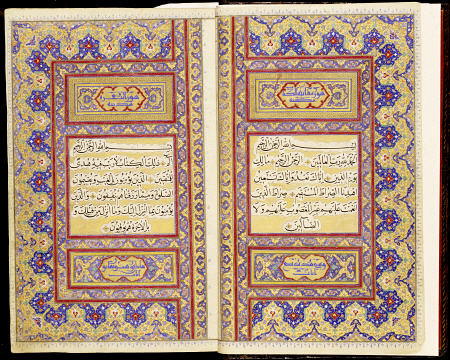 بسم الله الرحمن الرحيم
الحمد لله رب العالمين الرحمن الرحيم مالك
يوم الدين إياك نعبد وإياك نستعين
اهدنا الصراط المستقيم صراط الذين
أنعمت عليهم غير المغضوب عليهم ولا
الضالين
بسم الله الرحمن الرحيم
الم ذلك الكتاب لا ريب فيه هدى
للمتقين الذين يؤمنون بالغيب ويقيمون
الصلوة ومما رزقناهم ينفقون والذين
يؤمنون بما أنزل إليك وما أنزل من قبلك و
بالآخرة هم يوقنون